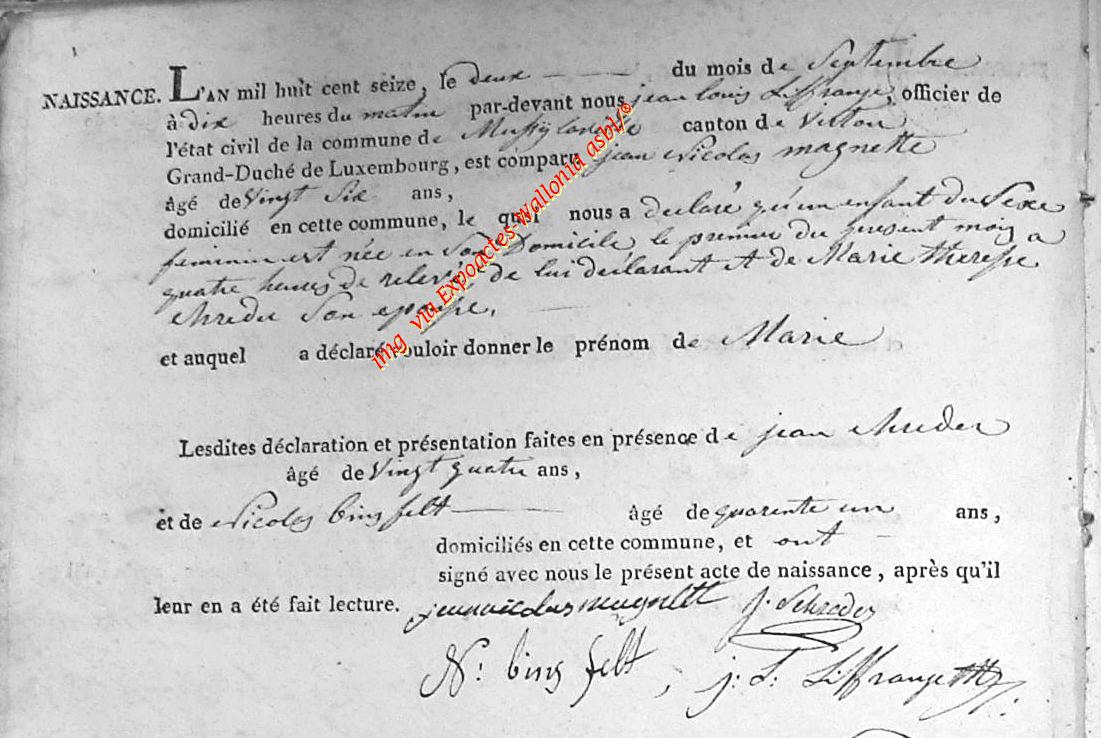 NAISSANCE. L'AN mil huit cent seize, le deux du mois de Septembre
à dix heures du matin par-devant nous jean louis Liffrange, officier de
l'état civil de la commune de Mussy canton de Virton
Grand-Duché de Luxembourg, est comparu jean Nicolas magnette
âgé de Vingt Six ans,
domicilié en cette commune, le quel nous a déclaré qu'un enfant du Sexe
feminin est née en Son Domicile, le premier du present mois a
quatre heures de relevée de lui declarant et de Marie therese
chreder Son epouse,
et auquel a déclaré vouloir donner le prénom de Marie
Lesdites déclaration et présentation faites en présence de jean chreder
âgé de Vingt quatre ans,
et de Nicolas bins felt âgé de quarente un ans,
domiciliés en cette commune, et ont
signé avec nous le présent acte de naissance, après qu'il
leur en a été fait lecture. jeannicolas magnette J. Schreder
N. bins felt, j. L. Liffrange
img via Expoactes-Wallonia asbl/®